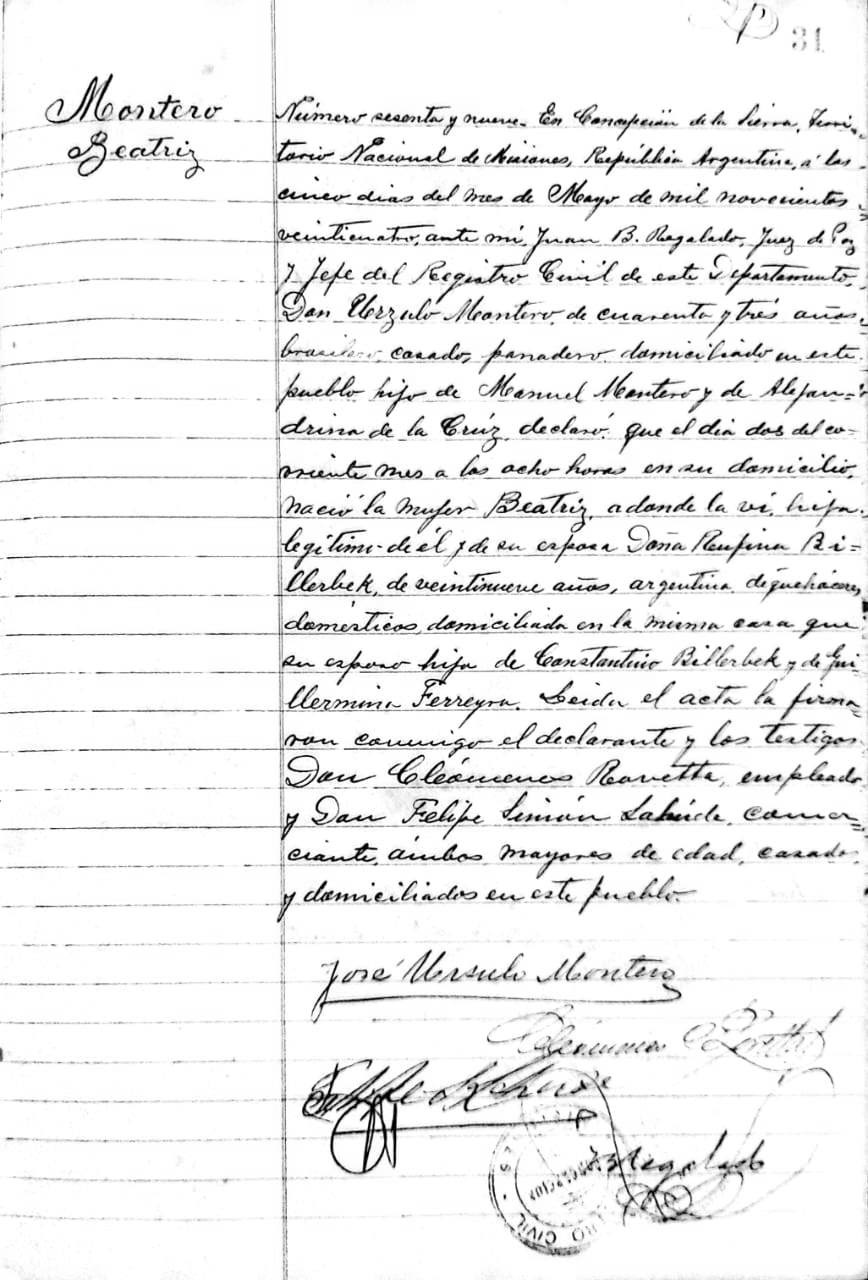 31
Montero
Beatriz
Número sesenta y nueve. En Concepción de la Sierra, Terri=
torio Nacional de Misiones, República Argentina, á los
cinco dias del mes de Mayo de mil novecientos
veinticuatro, ante mí, Juan B. Regalado, Juez de Paz
y Jefe del Registro Civil de este Departamento,
Don Urzulo Montero, de cuarenta y trés años,
brasilero, casado, panadero, domiciliado en este
pueblo hijo de Manuel Montero y de Alejan=
drina de la Crúz, declaró: que el día dos del co=
rriente mes a las ocho horas en su domicilio,
nació la mujer Beatriz, adonde la ví, hija
legítima de él y de su esposa Doña Rufina Bi=
llerbek, de veintinueve años, argentina, de quehaceres
domésticos, domiciliada en la misma casa que
su esposo hija de Constantino Billerbek y de Gui=
llermina Ferreyra. Leida el acta la firma=
ron conmigo el declarante y los testigos
Don Cleómenes Rovetta, empleado
y Don Felipe Simón Lahúde, comer=
ciante, ámbos mayores de edad, casados
y domiciliados en este pueblo.
José Ursulo Montero
Cleómenes Rovetta
Felipe
Regalado
CIVIL